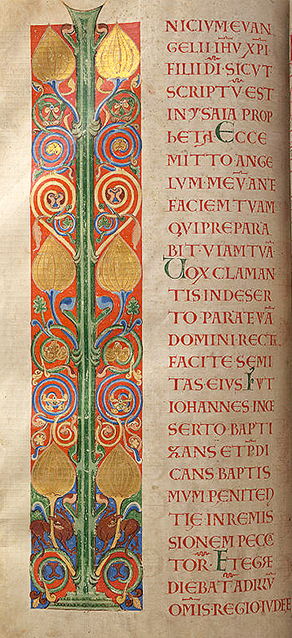 NICIUM EUAN
GELII IHU XPI
FILII DI · SICUT
SCRIPTU EST
IN YSAIA PROP
HETA · ECCE
MITTO ANGE
LUM · MEU ANTE
FACIEM TUAM ·
QUI PREPARA
BIT · UIAM TUA
UOX CLAMAN
TIS IN DESER
TO · PARATE UIA
DOMINI · RECTAS
FACITE SEMI
TAS EIUS · FUIT
IOHANNES IN DE
SERTO BAPTI
ZANS ET PDI
CANS BAPTIS
MUM PENITEN
TIE IN REMIS
SIONEM PECCA
TOR · ET EGRE
DIEBATUR AD ILLU
OMIS · REGIO IUDEE